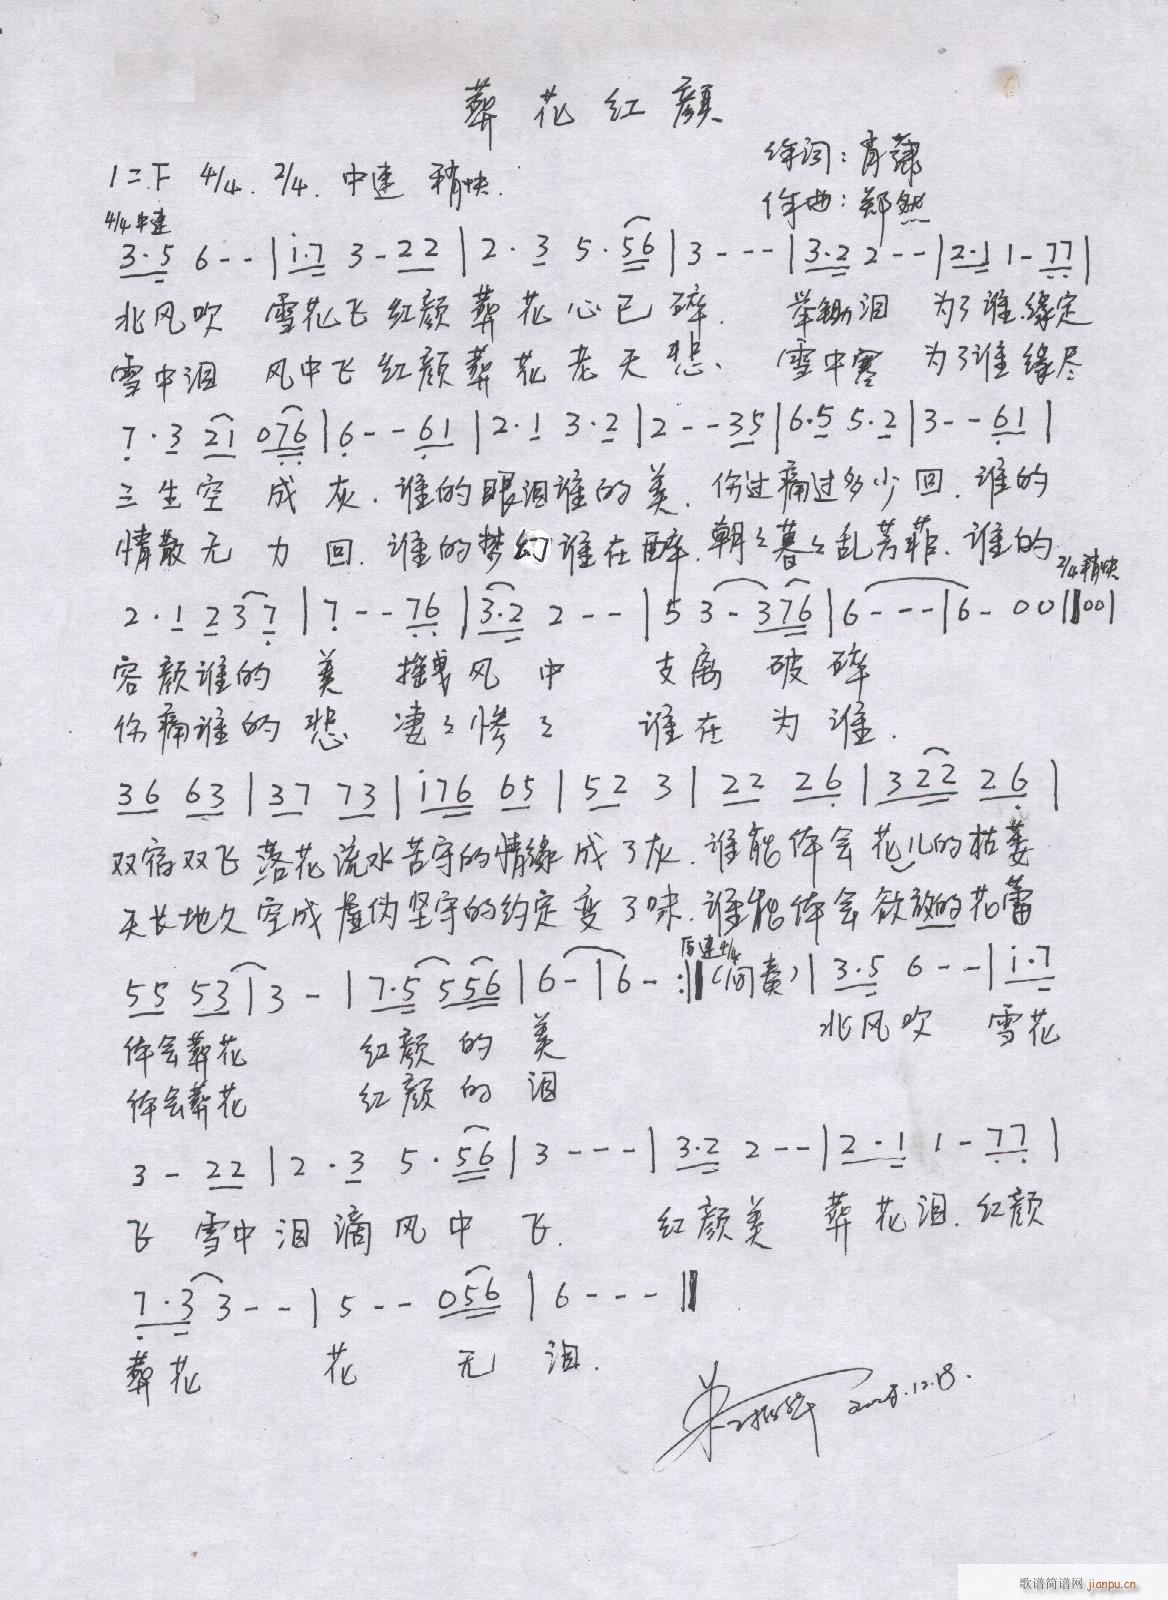 葬花红颜
1=F 4/4. 2/4. 中速 稍快.
作词:肖
作曲:郑然
4/4中速
3·5 6--|i·7 3-22|2·3 5·56|3---|3·2 2--|2·1 1-77|
北风吹 雪花飞红颜葬花心已碎. 举锄泪 为了谁.缘定
雪中泪 风中飞红颜葬花老天悲、 雪中寒 为了谁缘尽
7·3 21 076|6--61|2·1 3·2|2--35|6·5 5·2|3--61|
三生空 成灰.谁的眼泪谁的美.伤过痛过多少回.谁的
情散无力回.谁的梦幻谁在醉.朝々暮々乱芳菲.谁的
2/4稍快
2·1 237|7--76|3·2 2--|5 3-376|6---|6-00‖00|
容颜谁的美 摇曳风中 支离破碎
伤痛谁的悲 凄々惨々 谁在为谁.
36 63|37 73|i76 65|52 3|22 26|322 26|
双宿双飞落花流水苦守的情缘成了灰.谁能体会花儿的枯萎
天长地久空成虚伪坚守的约定变了味.谁能体会欲放的花蕾
原速4/4
55 53|3-|7·5 556|6-|6-:‖(间奏)|3·5 6--|i·7
体会葬花 红颜的美 北风吹 雪花
体会葬花 红颜的泪
3-22|2·3 5·56|3---|3·2 2--|2·1 1-77|
飞 雪中泪滴风中飞. 红颜美 葬花泪.红颜
7·3 3--|5--056|6---‖
葬花 花 无 泪.
12.18.
歌谱简谱网 jianpu.cn